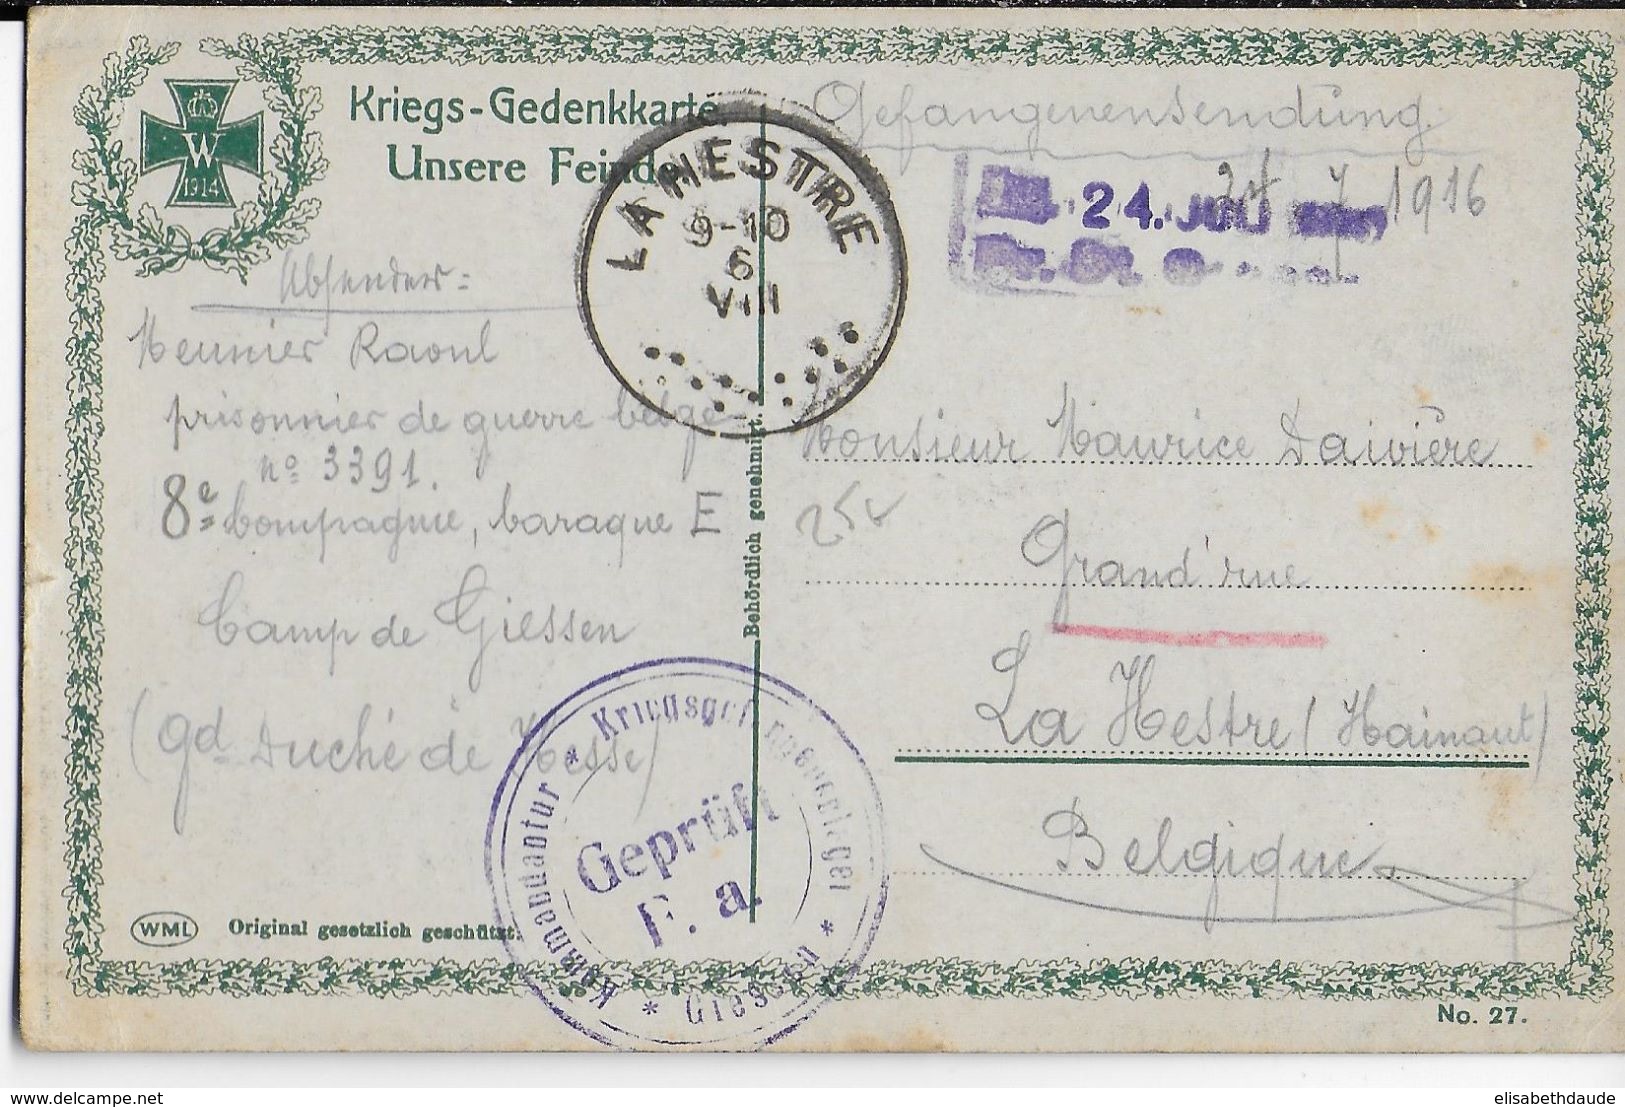 Kriegs-Gedenkkarte
Unsere Feinde
W
1914
Gefangenensendung
LA HESTRE
9-10
6
VIII
24. JULI
24 7 1916
Absender:
Meunier Raoul
prisonnier de guerre belge
nº 3391.
8e Compagnie, baraque E
Camp de Giessen
(Gd Duché de Hesse)
Monsieur Maurice Daivière
Grand'rue
La Hestre (Hainaut)
Belgique
Behördlich genehmigt.
Kommandantur * Kriegsgefangenenlager * Giessen *
Geprüft
F. a.
WML Original gesetzlich geschützt.
No. 27.
delcampe.net
elisabethdaude